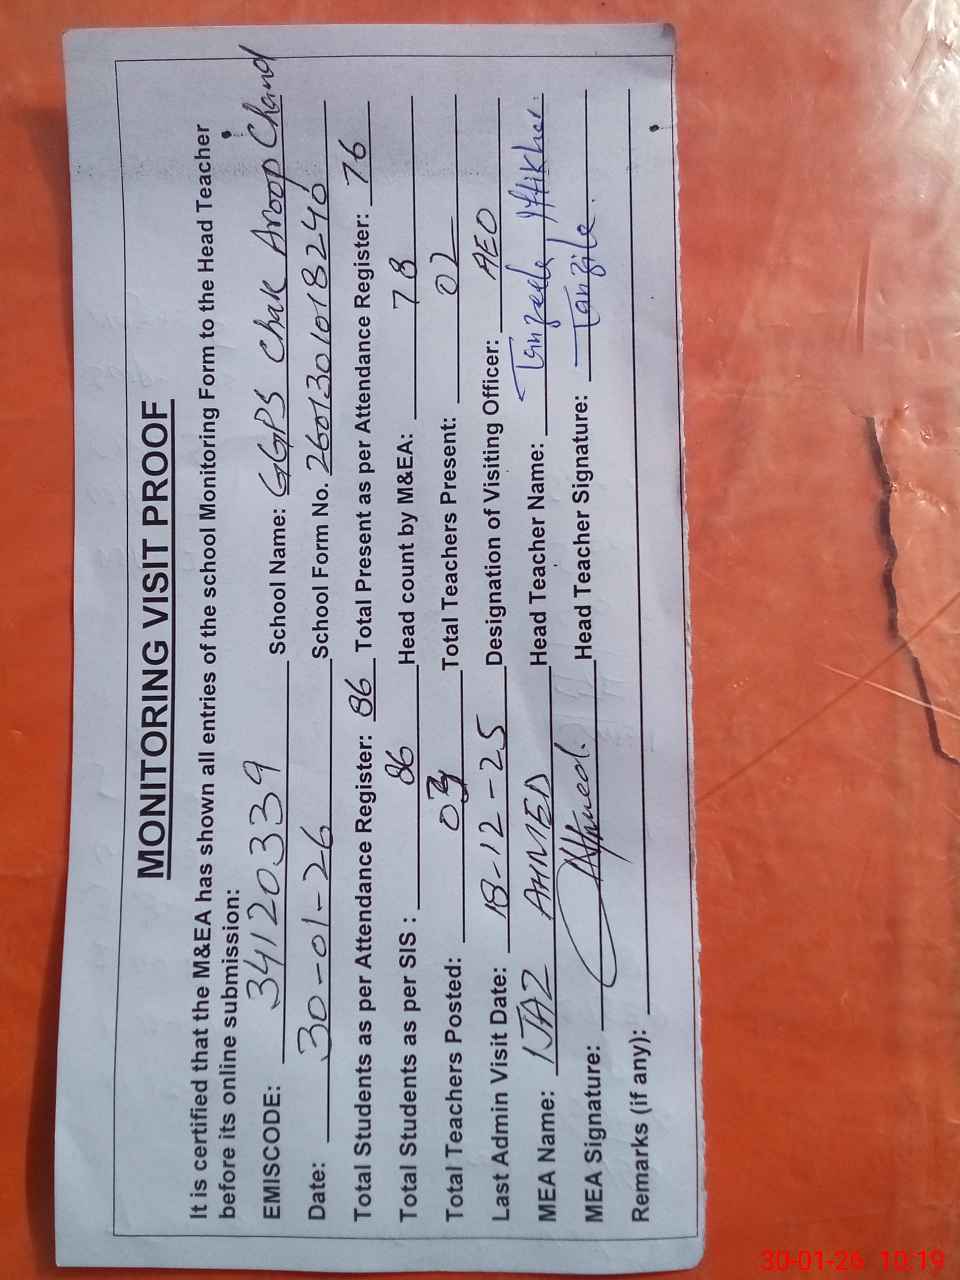 MONITORING VISIT PROOF
It is certified that the M&EA has shown all entries of the school Monitoring Form to the Head Teacher
before its online submission:
EMISCODE: 34120339 School Name: GGPS Chak Aroop Chand
Date: 30-01-26 School Form No. 2601301018240
Total Students as per Attendance Register: 86 Total Present as per Attendance Register: 76
Total Students as per SIS : 86 Head count by M&EA: 78
Total Teachers Posted: 03 Total Teachers Present: 02
Last Admin Visit Date: 18-12-25 Designation of Visiting Officer: AEO
MEA Name: IJAZ AHMED Head Teacher Name: Tanzeela Iftikhar.
MEA Signature: Ahmed. Head Teacher Signature: Tanzila.
Remarks (if any):
30-01-26 10:19